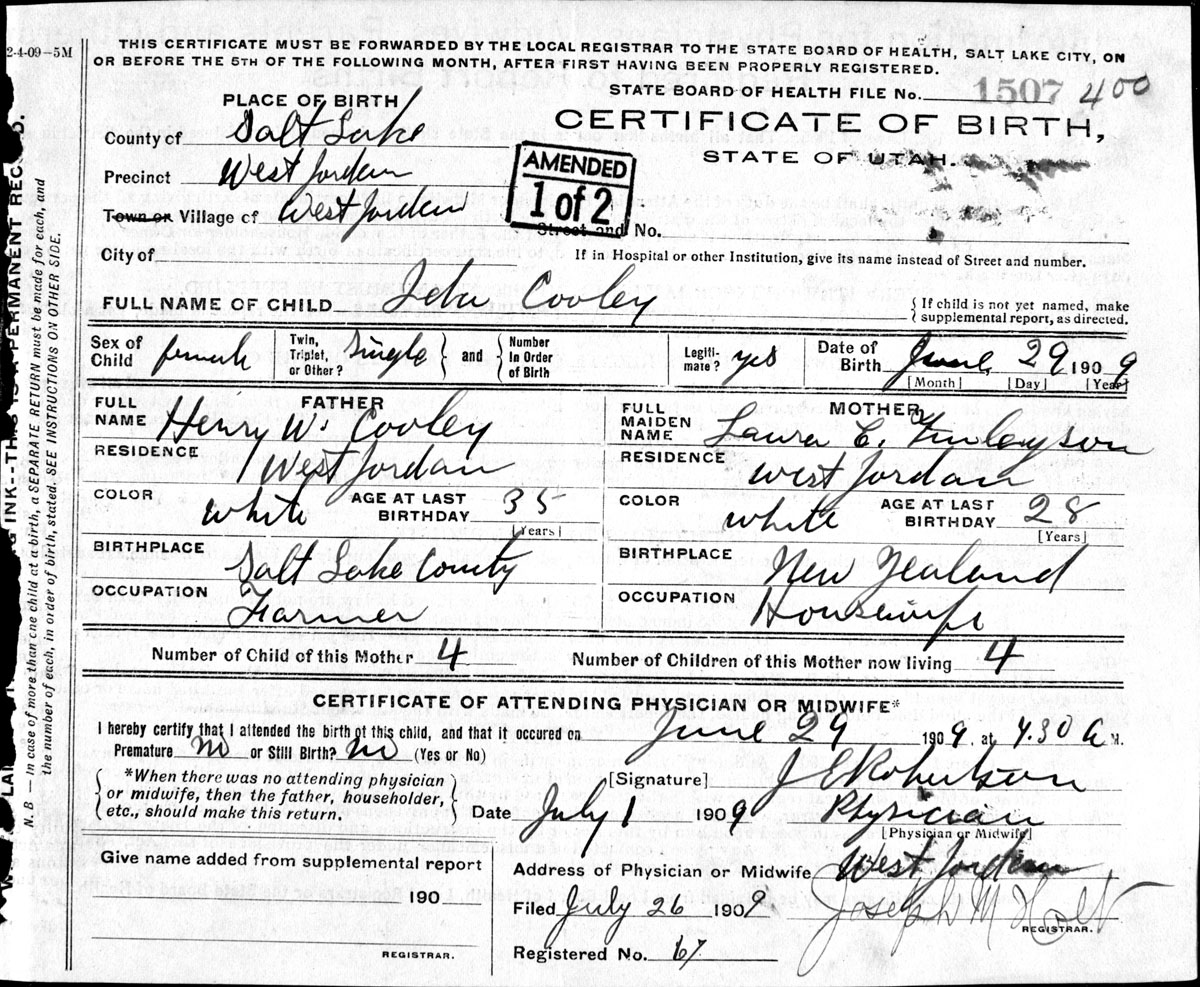 2-4-09—5M
THIS CERTIFICATE MUST BE FORWARDED BY THE LOCAL REGISTRAR TO THE STATE BOARD OF HEALTH, SALT LAKE CITY, ON
OR BEFORE THE 5TH OF THE FOLLOWING MONTH, AFTER FIRST HAVING BEEN PROPERLY REGISTERED.
STATE BOARD OF HEALTH FILE No. 1507 400
PLACE OF BIRTH
CERTIFICATE OF BIRTH,
STATE OF UTAH.
County of Salt Lake
Precinct West Jordan
Town or Village of West Jordan
AMENDED
1 of 2
Street and No.
City of
If in Hospital or other Institution, give its name instead of Street and number.
FULL NAME OF CHILD Cooley
{ If child is not yet named, make
supplemental report, as directed.
Sex of Child female Twin, Triplet, or Other? Single } and { Number In Order of Birth Legiti-mate? yes Date of Birth June 29 1909
[Month] [Day] [Year]
FATHER
FULL NAME Henry W. Cooley
RESIDENCE West Jordan
COLOR white AGE AT LAST BIRTHDAY 35
[Years]
BIRTHPLACE Salt Lake County
OCCUPATION Farmer
MOTHER
FULL MAIDEN NAME Laura C. Finlayson
RESIDENCE West Jordan
COLOR white AGE AT LAST BIRTHDAY 28
[Years]
BIRTHPLACE New Zealand
OCCUPATION Housewife
Number of Child of this Mother 4 Number of Children of this Mother now living 4
CERTIFICATE OF ATTENDING PHYSICIAN OR MIDWIFE*
I hereby certify that I attended the birth of this child, and that it occured on June 29 1909, at 4.30 A M.
Premature no or Still Birth? no (Yes or No)
{ *When there was no attending physician
or midwife, then the father, householder,
etc., should make this return. }
[Signature] J E Robertson
Date July 1 1909 Physician
[Physician or Midwife]
Give name added from supplemental report
190
REGISTRAR.
Address of Physician or Midwife West Jordan
Filed July 26 1909 Joseph M Holt
REGISTRAR.
Registered No. 67
INK--THIS IS A PERMANENT RECORD.
N. B. — In case of more than one child at a birth, a SEPARATE RETURN must be made for each, and
the number of each, in order of birth, stated. SEE INSTRUCTIONS ON OTHER SIDE.